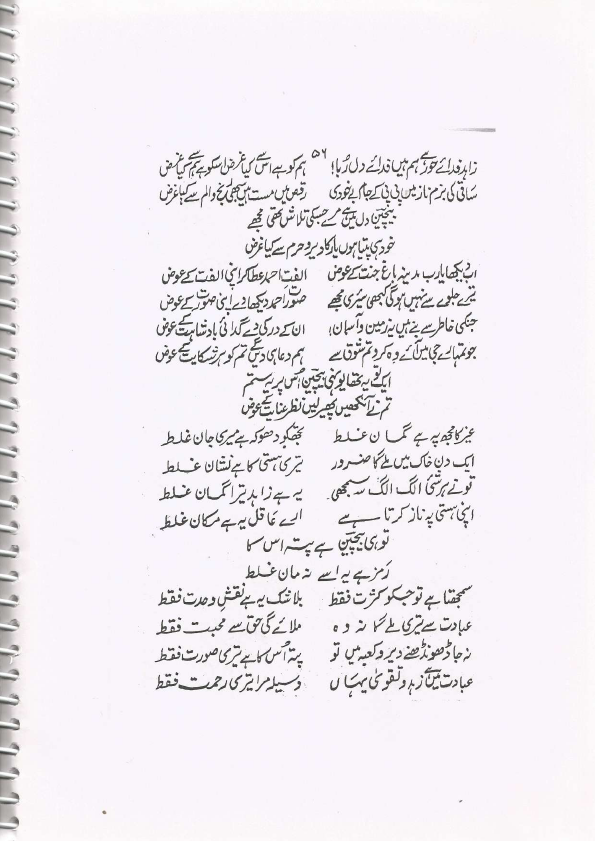 ۵۶
زاہد فدائے حور ہے ہم ہیں فدائے دل رُبا! ہم کو ہے اس سے کیا غرض اسکو ہے ہم سے کیا غرض
ساقی کی بزم ناز میں پی پی کے جام بے خودی رقص میں مست ہیں سبھی رنج و الم سے کیا غرض
بیچینؔ دل میں ہے مرے جسکی تلاش تھی مجھے
خود ہی پتیا ہوں یار کا دیر و حرم سے کیا غرض
اب دیکھا یارب مدینہ باغِ جنت کے عوض الفتِ احمد عطا کر اپنی الفت کے عوض
تیرے جلوے سے نہیں ہوگی کبھی سیری مجھے صورِ احمد دیکھا دے اپنی صورت کے عوض
جنکی خاطر سے بنے ہیں یہ زمین و آسمان ان کے در کی دے گدائی بادشاہت کے عوض
جو تمہارے جی میں آئے وہ کرو تم شوق سے ہم دعا ہی دیں گے تم کو ہر شکایت کے عوض
ایک تو یہ تھا یونہی بیچینؔ اُس پر یہ ستم
تم نے آنکھیں پھیر لیں نظرِ عنایت کے عوض
غیر کا مجھ پہ ہے گمان غلط تجھکو دھوکہ ہے میری جان غلط
ایک دن خاک میں ملے گا ضرور تیری ہستی کا ہے نشان غلط
تو نے ہر شئی الگ الگ سمجھی یہ ہے زاہد ترا گمان غلط
اپنی ہستی پہ ناز کرتا ہے ارے غافل یہ ہے مکان غلط
تو ہی بیچینؔ ہے پتہ اس کا
رمز ہے یہ اسے نہ مان غلط
سمجھتا ہے تو جسکو کثرت فقط بلا شک یہ ہے نقشِ وحدت فقط
عبادت سے تیری ملے گا نہ وہ ملائے گی حق سے محبت فقط
نہ جا ڈھونڈھنے دیر و کعبہ میں تو پتہ اُس کا ہے تیری صورت فقط
عبادت میں ہے زہد و تقویٰ یہاں وسیلہ مرا تیری رحمت فقط